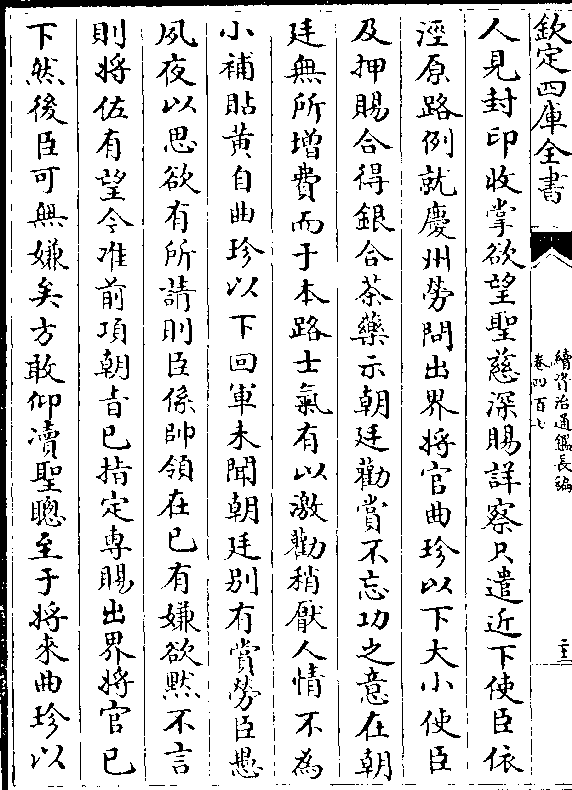 欽定四庫全書
續資治通鑑長編
卷四百七
二十三
人見封印收掌欲望聖慈深賜詳察只遣近下使臣依
涇原路例就慶州勞問出界將官曲珍以下大小使臣
及押賜合得銀合茶藥示朝廷勸賞不忘功之意在朝
廷無所增費而于本路士氣有以激勸稍厭人情不為
小補貼黃自曲珍以下回軍未聞朝廷别有賞勞臣愚
夙夜以思欲有所請則臣係帥領在已有嫌欲黙不言
則將佐有望今准前項朝㫖已指定專賜出界將官已
下然後臣可無嫌矣方敢仰瀆聖聰至于將來曲珍以